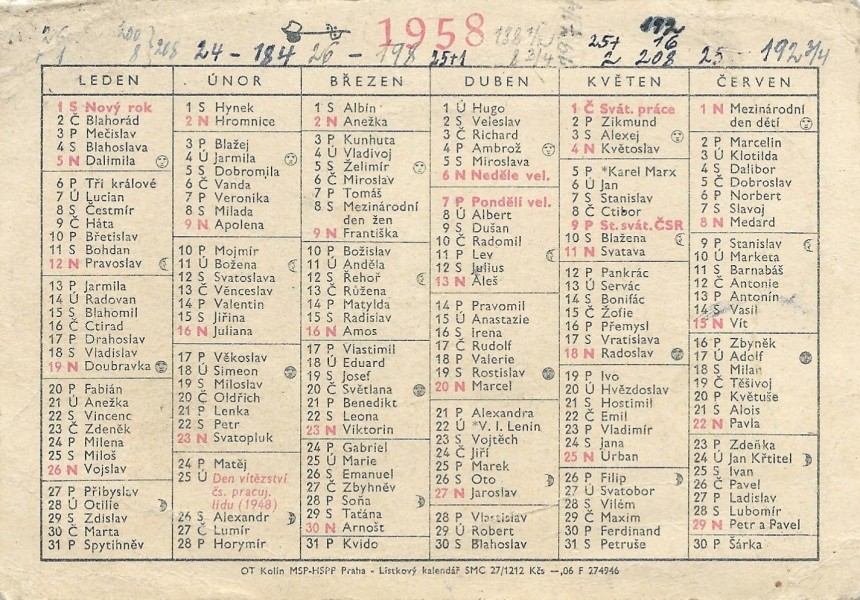 26 200 1958 188 1/2 192
1 8 } 208 24 - 184 26 - 198 25+1 8 3/4 25+ 16 25 - 192 3/4
2 208
LEDEN
1 S Nový rok
2 Č Blahorád
3 P Mečislav
4 S Blahoslava
5 N Dalimila
6 P Tři králové
7 Ú Lucian
8 S Čestmír
9 Č Háta
10 P Břetislav
11 S Bohdan
12 N Pravoslav
13 P Jarmila
14 Ú Radovan
15 S Blahomil
16 Č Ctirad
17 P Drahoslav
18 S Vladislav
19 N Doubravka
20 P Fabián
21 Ú Anežka
22 S Vincenc
23 Č Zdeněk
24 P Milena
25 S Miloš
26 N Vojslav
27 P Přibyslav
28 Ú Otilie
29 S Zdislav
30 Č Marta
31 P Spytihněv
ÚNOR
1 S Hynek
2 N Hromnice
3 P Blažej
4 Ú Jarmila
5 S Dobromila
6 Č Vanda
7 P Veronika
8 S Milada
9 N Apolena
10 P Mojmír
11 Ú Božena
12 S Svatoslava
13 Č Věnceslav
14 P Valentin
15 S Jiřina
16 N Juliana
17 P Věkoslav
18 Ú Simeon
19 S Miloslav
20 Č Oldřich
21 P Lenka
22 S Petr
23 N Svatopluk
24 P Matěj
25 Ú Den vítězství
čs. pracuj.
lidu (1948)
26 S Alexandr
27 Č Lumír
28 P Horymír
BŘEZEN
1 S Albín
2 N Anežka
3 P Kunhuta
4 Ú Vladivoj
5 S Želimír
6 Č Miroslav
7 P Tomáš
8 S Mezinárodní
den žen
9 N Františka
10 P Božislav
11 Ú Anděla
12 S Řehoř
13 Č Růžena
14 P Matylda
15 S Radislav
16 N Amos
17 P Vlastimil
18 Ú Eduard
19 S Josef
20 Č Světlana
21 P Benedikt
22 S Leona
23 N Viktorin
24 P Gabriel
25 Ú Marie
26 S Emanuel
27 Č Zbyhněv
28 P Soňa
29 S Taťána
30 N Arnošt
31 P Kvido
DUBEN
1 Ú Hugo
2 S Veleslav
3 Č Richard
4 P Ambrož
5 S Miroslava
6 N Neděle vel.
7 P Pondělí vel.
8 Ú Albert
9 S Dušan
10 Č Radomil
11 P Lev
12 S Julius
13 N Aleš
14 P Pravomil
15 Ú Anastazie
16 S Irena
17 Č Rudolf
18 P Valerie
19 S Rostislav
20 N Marcel
21 P Alexandra
22 Ú *V. I. Lenin
23 S Vojtěch
24 Č Jiří
25 P Marek
26 S Oto
27 N Jaroslav
28 P Vlastislav
29 Ú Robert
30 S Blahoslav
KVĚTEN
1 Č Svát. práce
2 P Zikmund
3 S Alexej
4 N Květoslav
5 P *Karel Marx
6 Ú Jan
7 S Stanislav
8 Č Ctibor
9 P St. svát. ČSR
10 S Blažena
11 N Svatava
12 P Pankrác
13 Ú Servác
14 S Bonifác
15 Č Žofie
16 P Přemysl
17 S Vratislava
18 N Radoslav
19 P Ivo
20 Ú Hvězdoslav
21 S Hostimil
22 Č Emil
23 P Vladimír
24 S Jana
25 N Urban
26 P Filip
27 Ú Svatobor
28 S Vilém
29 Č Maxim
30 P Ferdinand
31 S Petruše
ČERVEN
1 N Mezinárodní
den dětí
2 P Marcelin
3 Ú Klotilda
4 S Dalibor
5 Č Dobroslav
6 P Norbert
7 S Slavoj
8 N Medard
9 P Stanislav
10 Ú Marketa
11 S Barnabáš
12 Č Antonie
13 P Antonín
14 S Vasil
15 N Vít
16 P Zbyněk
17 Ú Adolf
18 S Milan
19 Č Těšivoj
20 P Květuše
21 S Alois
22 N Pavla
23 P Zdeňka
24 Ú Jan Křtitel
25 S Ivan
26 Č Pavel
27 P Ladislav
28 S Lubomír
29 N Petr a Pavel
30 P Šárka
OT Kolín MSP-HSPP Praha - Lístkový kalendář SMC 27/1212 Kčs —,06 F 274946